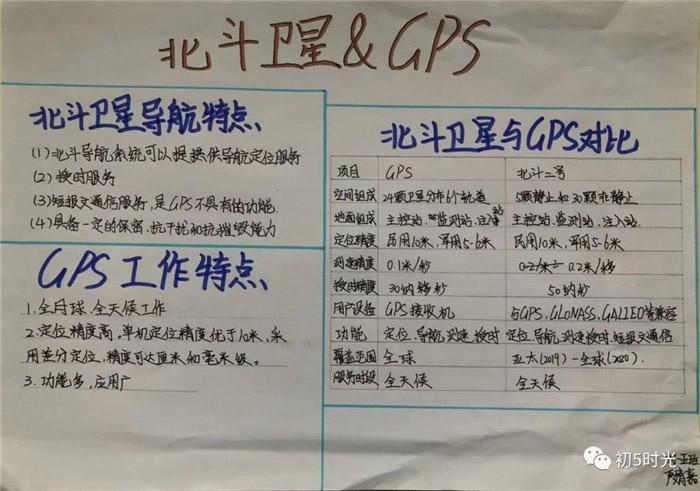 北斗卫星&GPS
北斗卫星导航特点
(1)北斗导航系统可以提供导航定位服务
(2)授时服务
(3)短报文通信服务,是GPS不具有的功能.
(4)具备一定的保密、抗干扰和抗摧毁能力
GPS工作特点
1.全球、全天候工作
2.定位精度高。单机定位精度优于10米,采
用差分定位,精度可达厘米和毫米级。
3.功能多,应用广
北斗卫星与GPS对比
项目 GPS 北斗二号
空间组成 24颗卫星分布6个轨道 5颗静止和30颗非静止
地面组成 主控站、监测站、注入站 主控站、监测站、注入站
定位精度 民用10米,军用5-6米 民用10米,军用5-6米
测速精度 0.1米/秒 0.2米/秒
授时精度 30纳秒 50纳秒
用户设备 GPS接收机 与GPS,GLONASS,GALIEO等兼容
功能 定位、导航、测速、授时 定位、导航、测速授时、短报文通信
覆盖范围 全球 亚太(2019)-全球(2020).
服务时段 全天候 全天候
初5时光